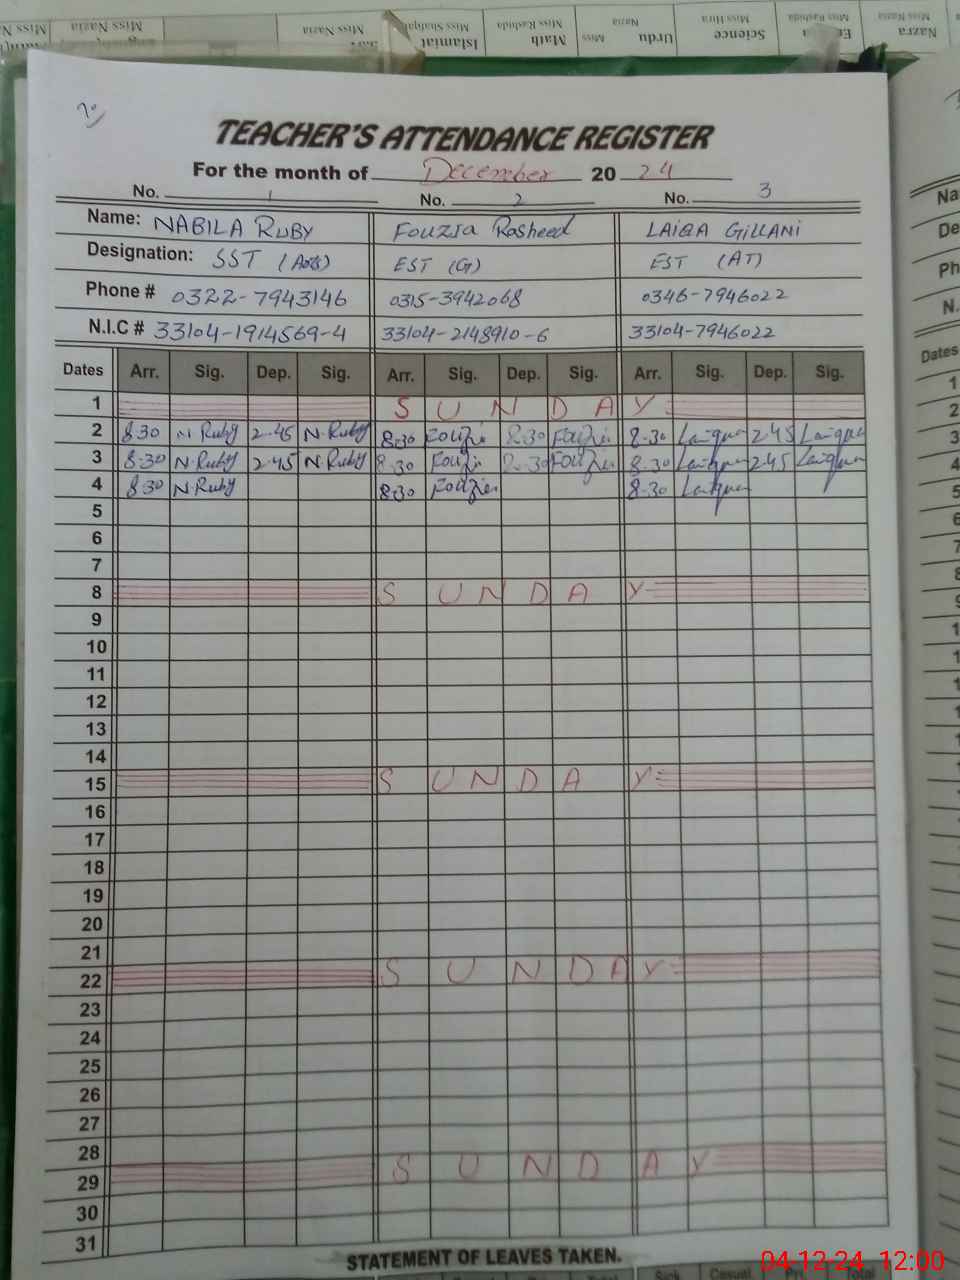 TEACHER'S ATTENDANCE REGISTER
For the month of December 2024
No. 1 No. 2 No. 3
Name: NABILA RUBY Fouzia Rasheed LAIQA GILLANI
Designation: SST (Arts) EST (G) EST (AT)
Phone # 0322-7943146 0315-3942068 0346-7946022
N.I.C # 33104-1914569-4 33104-2148910-6 33104-7946022
Dates Arr. Sig. Dep. Sig. Arr. Sig. Dep. Sig. Arr. Sig. Dep. Sig.
1 SUNDAY
2 8-30 N.Ruby 2-45 N.Ruby 8-30 Fouzia 8-30 Fouzia 8-30 Laiqua 2-45 Laiqua
3 8-30 N.Ruby 2-45 N.Ruby 8-30 Fouzia 8-30 Fouzia 8-30 Laiqua 2-45 Laiqua
4 8-30 N.Ruby 8-30 Fouzia 8-30 Laiqua
5
6
7
8 SUNDAY
9
10
11
12
13
14
15 SUNDAY
16
17
18
19
20
21
22 SUNDAY
23
24
25
26
27
28
29 SUNDAY
30
31
STATEMENT OF LEAVES TAKEN.
04-12-24 12:00